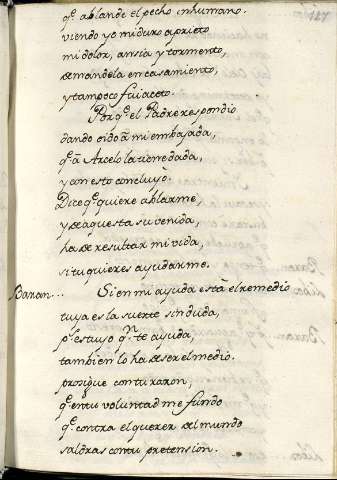 127
q.e ablande el pecho inhumano.
viendo yo mi duro aprieto
mi dolor, ansia y tormento,
demandela en casamiento,
y tampoco fui aceto.
Porq.e el Padre respondio
dando oido â mi embajada,
q.e â Arcelo la tiene dada,
y con esto concluyò.
Dice q.e quiere ablarme,
y de aquesta su venida,
ha de resultar mi vida,
si tu quieres ayudarme.
Baran... Si en mi ayuda està el remedio
tuya es la suerte sin duda,
p.s es tuyo q.n te ayuda,
tambien lo ha de ser el medio.
prosigue con tu razon,
q.e en tu voluntad me fundo
q.e contra el querer del mundo
saldras con tu pretension.